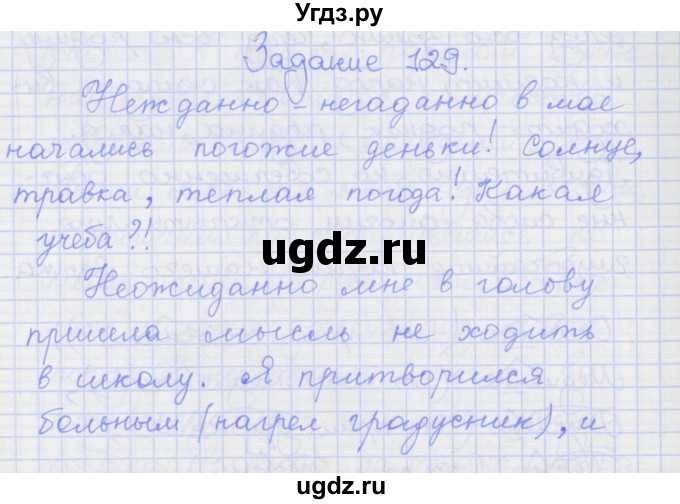 Угдз.ру
Задание 129.
Нежданно - негаданно в мае
начались погожие деньки! Солнце,
травка, теплая погода! Какая
учеба?!
ugdz.ru
Неожиданно мне в голову
пришла мысль не ходить
в школу. Я притворился
больным (нагрел градусник), и
ugdz.ru